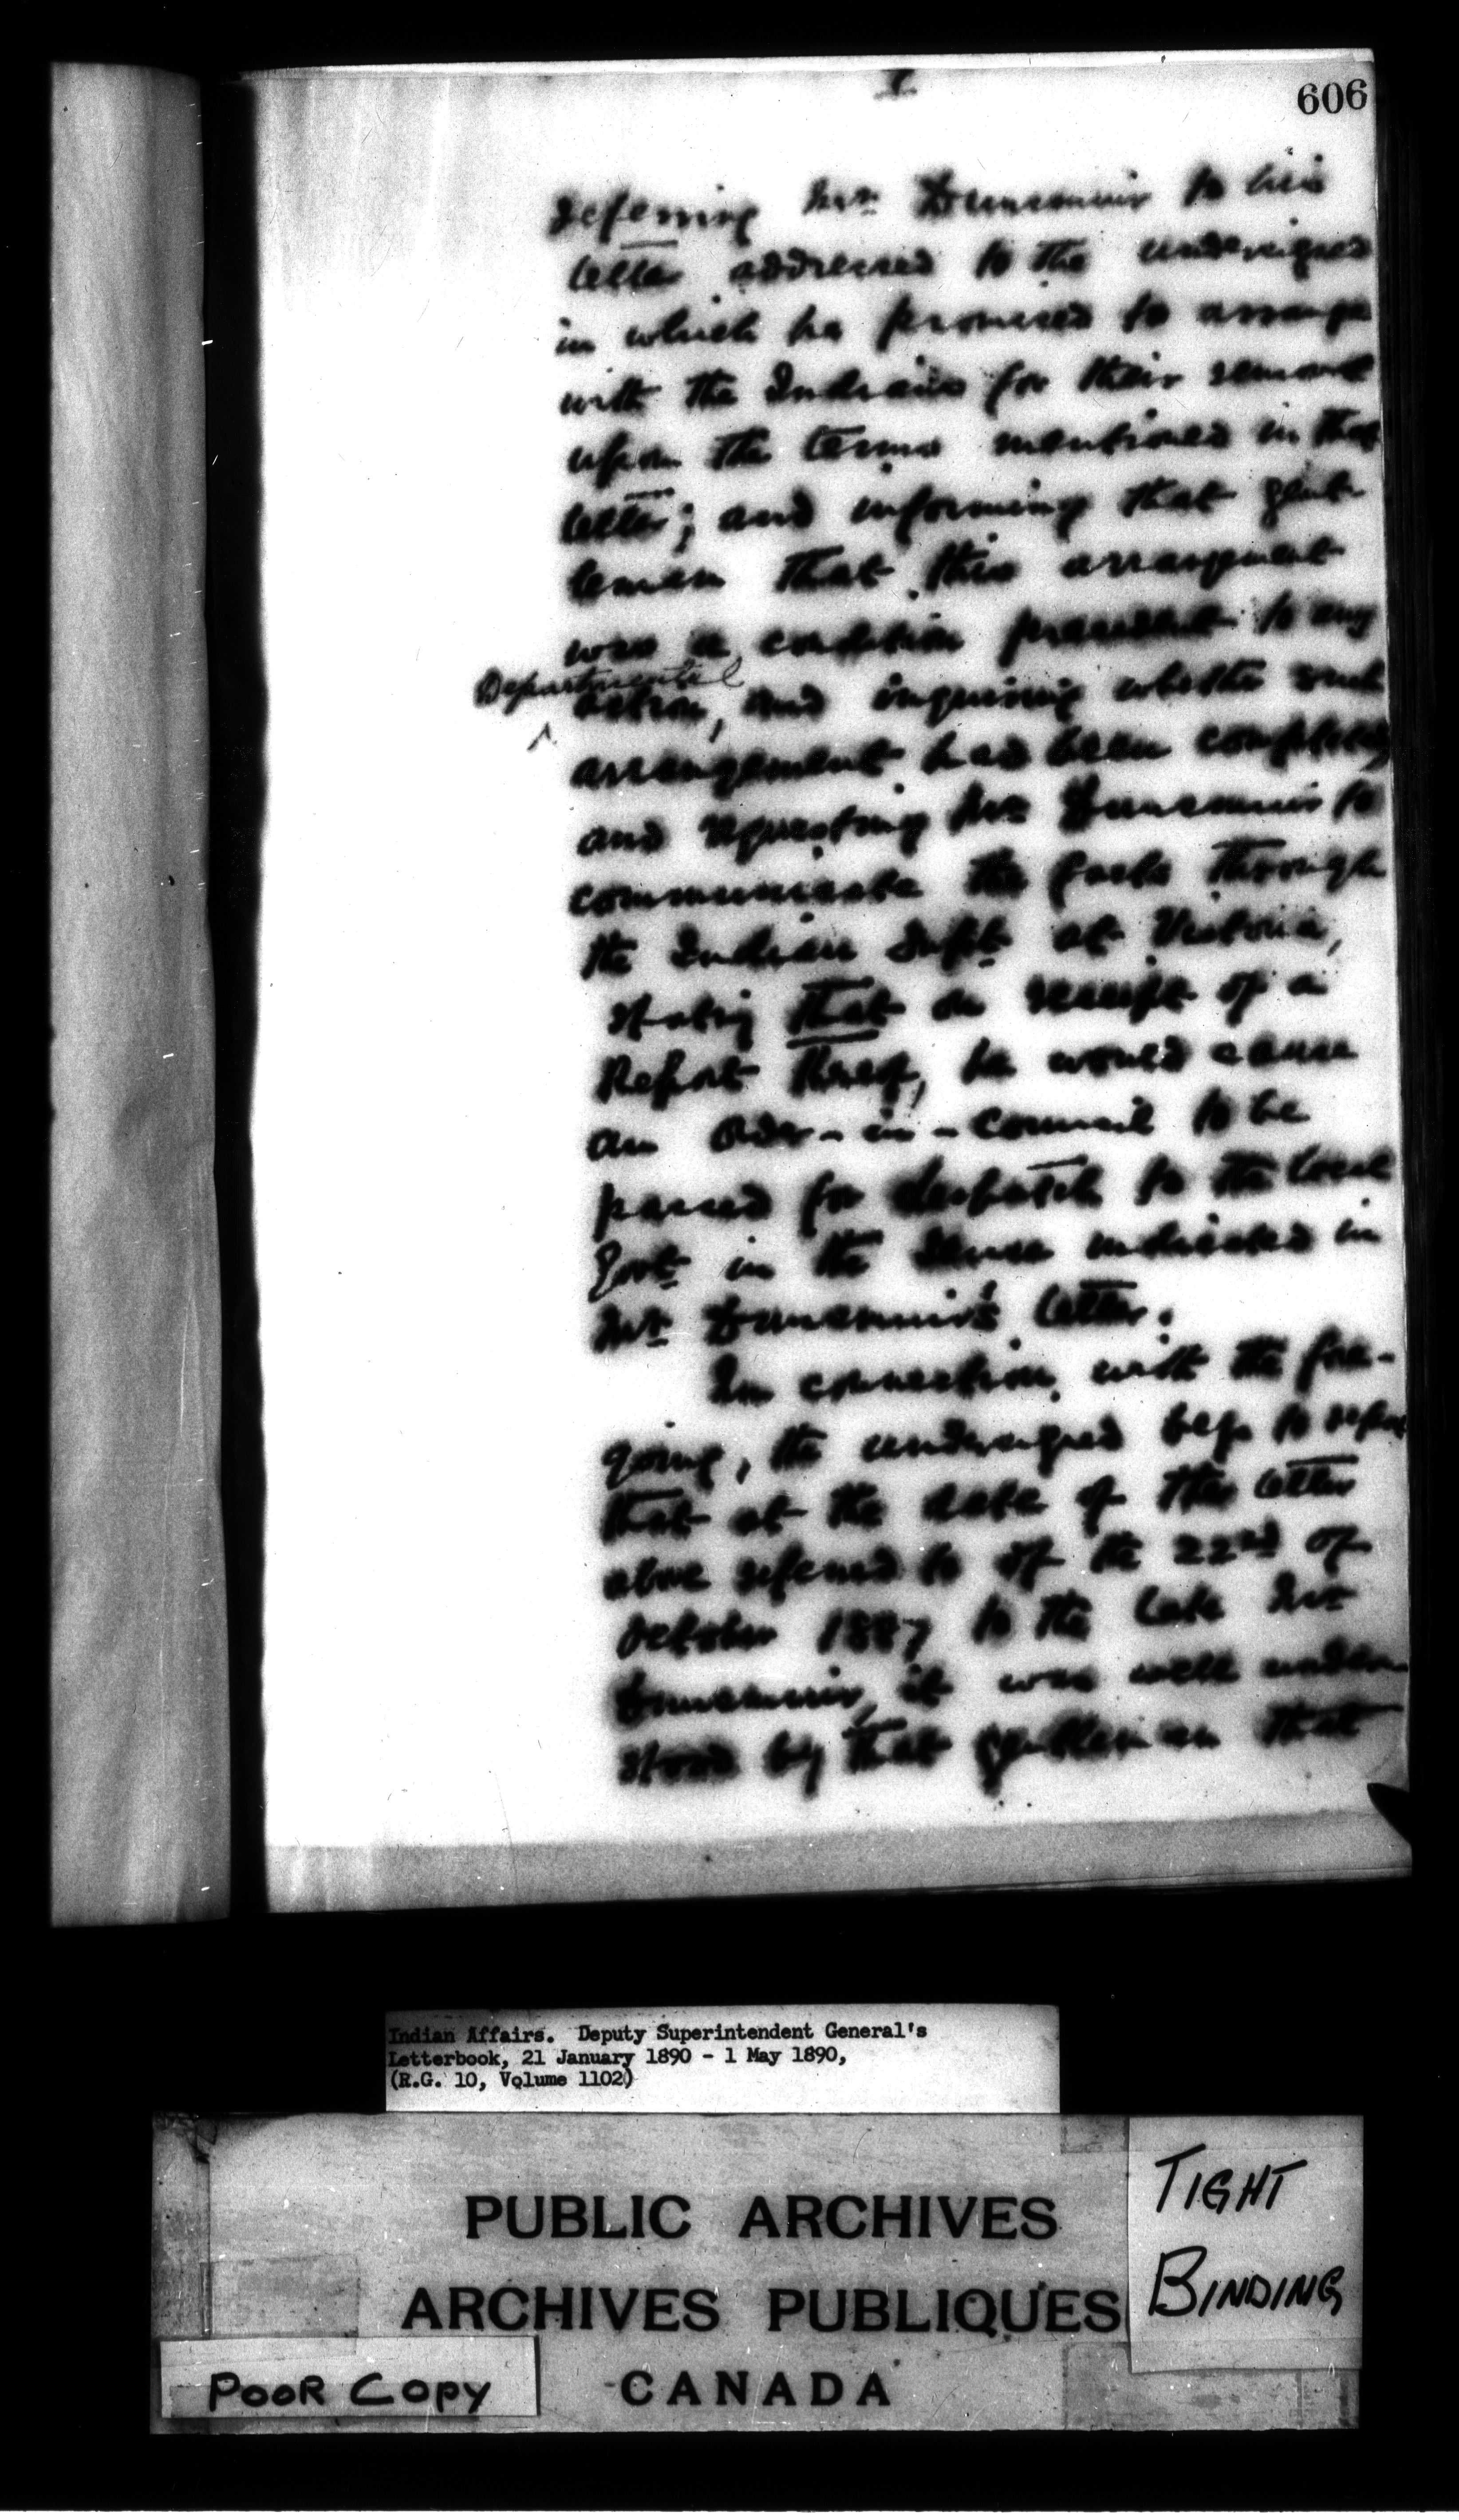 606
referring Mr Dunsmuir to his
letter addressed to the undersigned
in which he promised to arrange
with the Indians for their removal
upon the terms mentioned in that
letter; and informing that gent-
leman that this arrangement
was a condition precedent to any
Departmental
action, and inquiring whether such
arrangement had been completed
and requesting Mr Dunsmuir to
communicate the facts through
the Indian Supt at Victoria,
stating that on receipt of a
Report thereof, he would cause
an Order-in-Council to be
passed for despatch to the local
Govt in the sense indicated in
Mr Dunsmuir's letter.
In connection with the fore-
going, the undersigned begs to report
that at the date of the letter
above referred to of the 22nd of
October 1887 to the late Mr
Dunsmuir, it was well under-
stood by that gentleman that
Indian Affairs. Deputy Superintendent General's
Letterbook, 21 January 1890 - 1 May 1890,
(R.G. 10, Volume 1102)
PUBLIC ARCHIVES
ARCHIVES PUBLIQUES
CANADA
TIGHT
BINDING
POOR COPY